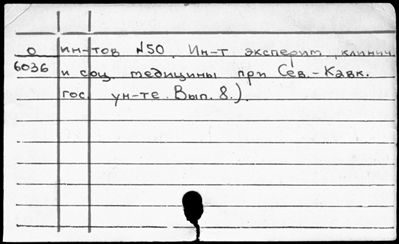 0 ин-тов №50. Ин-т эксперим., клинич.
6036 и соц. медицины при Сев.-Кавк.
гос. ун-те. Вып. 8.).